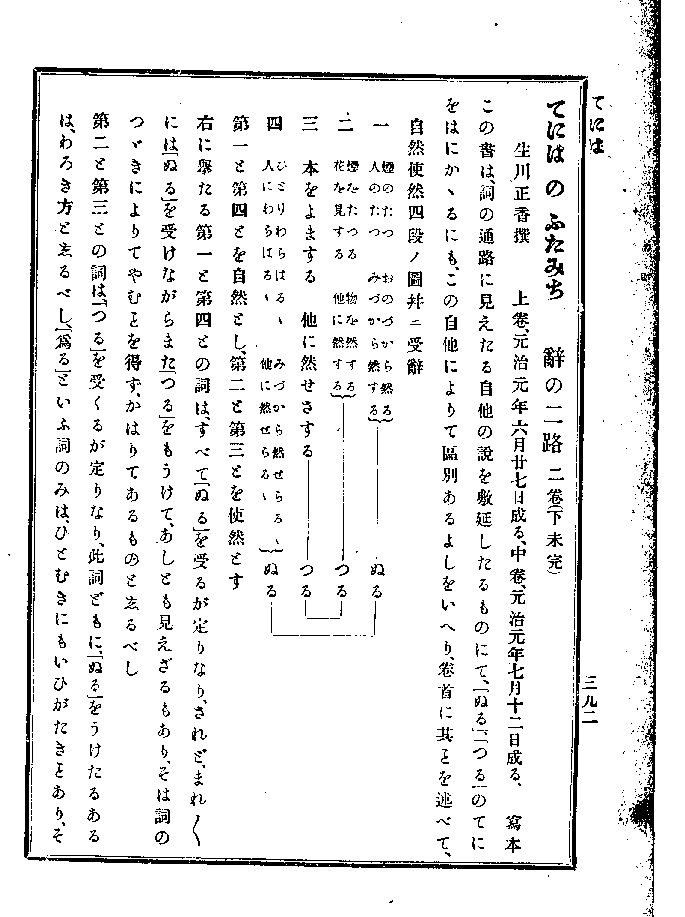 てには
三九二
てにはのふたみち　辭の二路　二卷(下未完)
生川正香撰　上卷、元治元年六月廿七日成る、中卷、元治元年七月十二日成る、　寫本
この書は、詞の通路に見えたる自他の說を敷延したるものにて、「ぬる」「つる」のてに
をはにかゝるにも、この自他によりて區別あるよしをいへり、卷首に其ことを述べて、
自然使然四段ノ圖幷ニ受辭
一　煙のたつ　おのづから然る
人のたつ　みづから然する　ぬる
二　煙をたつる　物を然する
花を見する　他に然する　つる
三　本をよまする　他に然せさする　つる
四　ひとりわらはるゝ　みづから然せらるゝ
人にわらはるゝ　他に然せらるゝ　ぬる
第一と第四とを自然とし、第二と第三とを使然とす
右に擧たる第一と第四との詞は、すべて「ぬる」を受るが定りなり、されど、まれ〱
には「ぬる」を受けながらまた「つる」をもうけて、あしとも見えざるもあり、そは詞の
つゞきによりてやむことを得ず、かはりてあるものと志るべし
第二と第三との詞は、「つる」を受くるが定りなり、此詞どもに、「ぬる」をうけたるある
は、わろき方と志るべし、「爲る」といふ詞のみは、ひとむきにもいひがたきことあり、そ